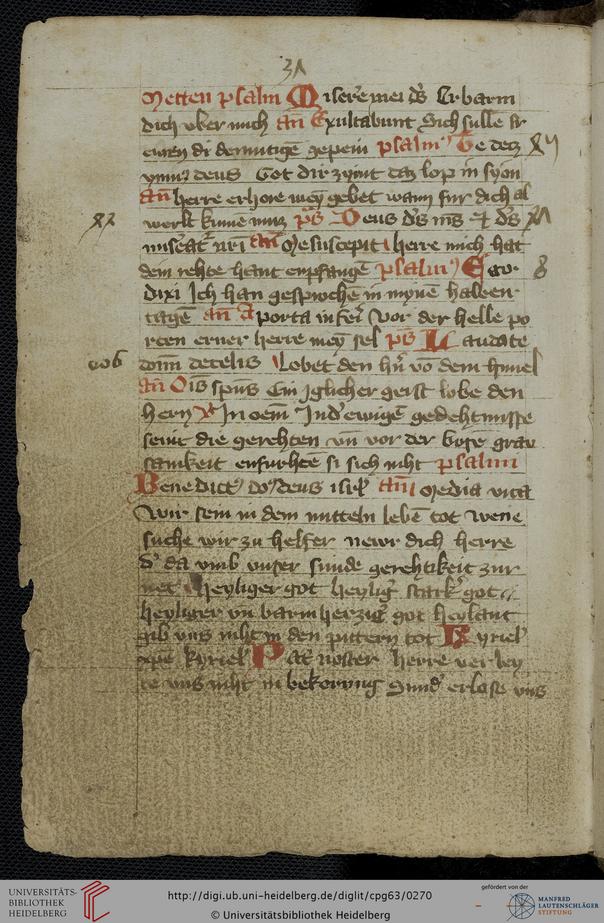 31
Metten psalm Misere mei ds Erbarm
dich vber mich an Exultabunt Sich sulle fr
ewen di demutige gepein psalm Te decz
ymnus deus Got dir zymt daz lop in syon
an herre erhore mey gebet wann fur dich al
werlt kume muz ps Deus ds ms et ds
miseat nri an Me suscepit herre mich hat
dein rehte hant enpfange psalm Ego
8
dixi Ich han gesproche in myne halben
tagē an A porta inferi Vor der helle po
rten erner herre mey sel ps Laudate
dominum de celis Lobet den hn vo dem himel
an Ois spūs Ein iglicher geist lobe den
hern In oem In der ewige gedehtnisse
seint die gerehten vn vor der bose grau
samkeit enfurhte si sich niht psalm
Benedict dos deus isrl an Media vita
Wir sein in dem mitteln lebē tot wene
suche wir zu helfer newr dich herre
der da vmb vnser sunde gerehtikeit zur
net heyliger got heylig stark got
heyliger vn barmherzig got heylant
gib vns niht in den pittern tot Kyriel
xpe kyriel Pat noster herre verley
te vns niht in bekorung Sund erlose vns
UNIVERSITÄTS-
BIBLIOTHEK
HEIDELBERG
http://digi.ub.uni-heidelberg.de/diglit/cpg63/0270
© Universitätsbibliothek Heidelberg
gefördert von der
MANFRED
LAUTENSCHLÄGER
STIFTUNG